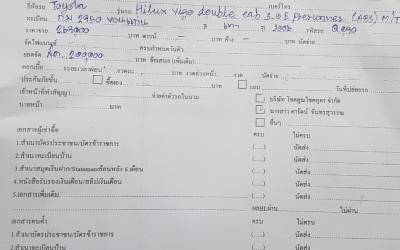 ยี่ห้อรถ Toyota รุ่นรถ Hilux vigo double cab 3.0E Prerunner (ABS) M/T
ทะเบียน ขอนแก่น ปี 2006 รหัสรถ
ราคาขาย 269000 บาท ดาวน์ - บาท ค้าง - บาท นัดจ่าย
จัดไฟแนนซ์ ครบกำหนดวันที่
ยอดจัด 200,000 บาท ข้อเสนอ (เพิ่มเติม)
ดอกเบี้ย ระยะเวลาผ่อน งวด บาท งวด นัดจ่าย
ประกันภัยชั้น ซื้อเอง บาท แถม วันที่ปล่อยรถ
เจ้าหน้าที่ทำสัญญา จ่ายค่าตัวรถในนาม บริษัท โชคคูณโชคคูคาร์ จำกัด
นายหน้า บาท นางสาว ดารัตน์ จันทรสุวรรณ
อื่นๆ
เอกสารผู้เช่าซื้อ ครบ ไม่ครบ
1.สำเนาบัตรประชาชน/บัตรข้าราชการ (....) นัดส่ง
2.สำเนาทะเบียนบ้าน (....) นัดส่ง
3.สำเนาสมุดเงินฝาก/Statementย้อนหลัง 6 เดือน (....) นัดส่ง
4.หนังสือรับรองเงินเดือน/สลิปเงินเดือน (....) นัดส่ง
5.เอกสารเพิ่มเติม (....) นัดส่ง
ผ่าน ไม่ผ่าน
เอกสารคนค้ำ ครบ ไม่ครบ
1.สำเนาบัตรประชาชน/บัตรข้าราชการ (....) นัดส่ง
2.สำเนาทะเบียนบ้าน (....) นัดส่ง